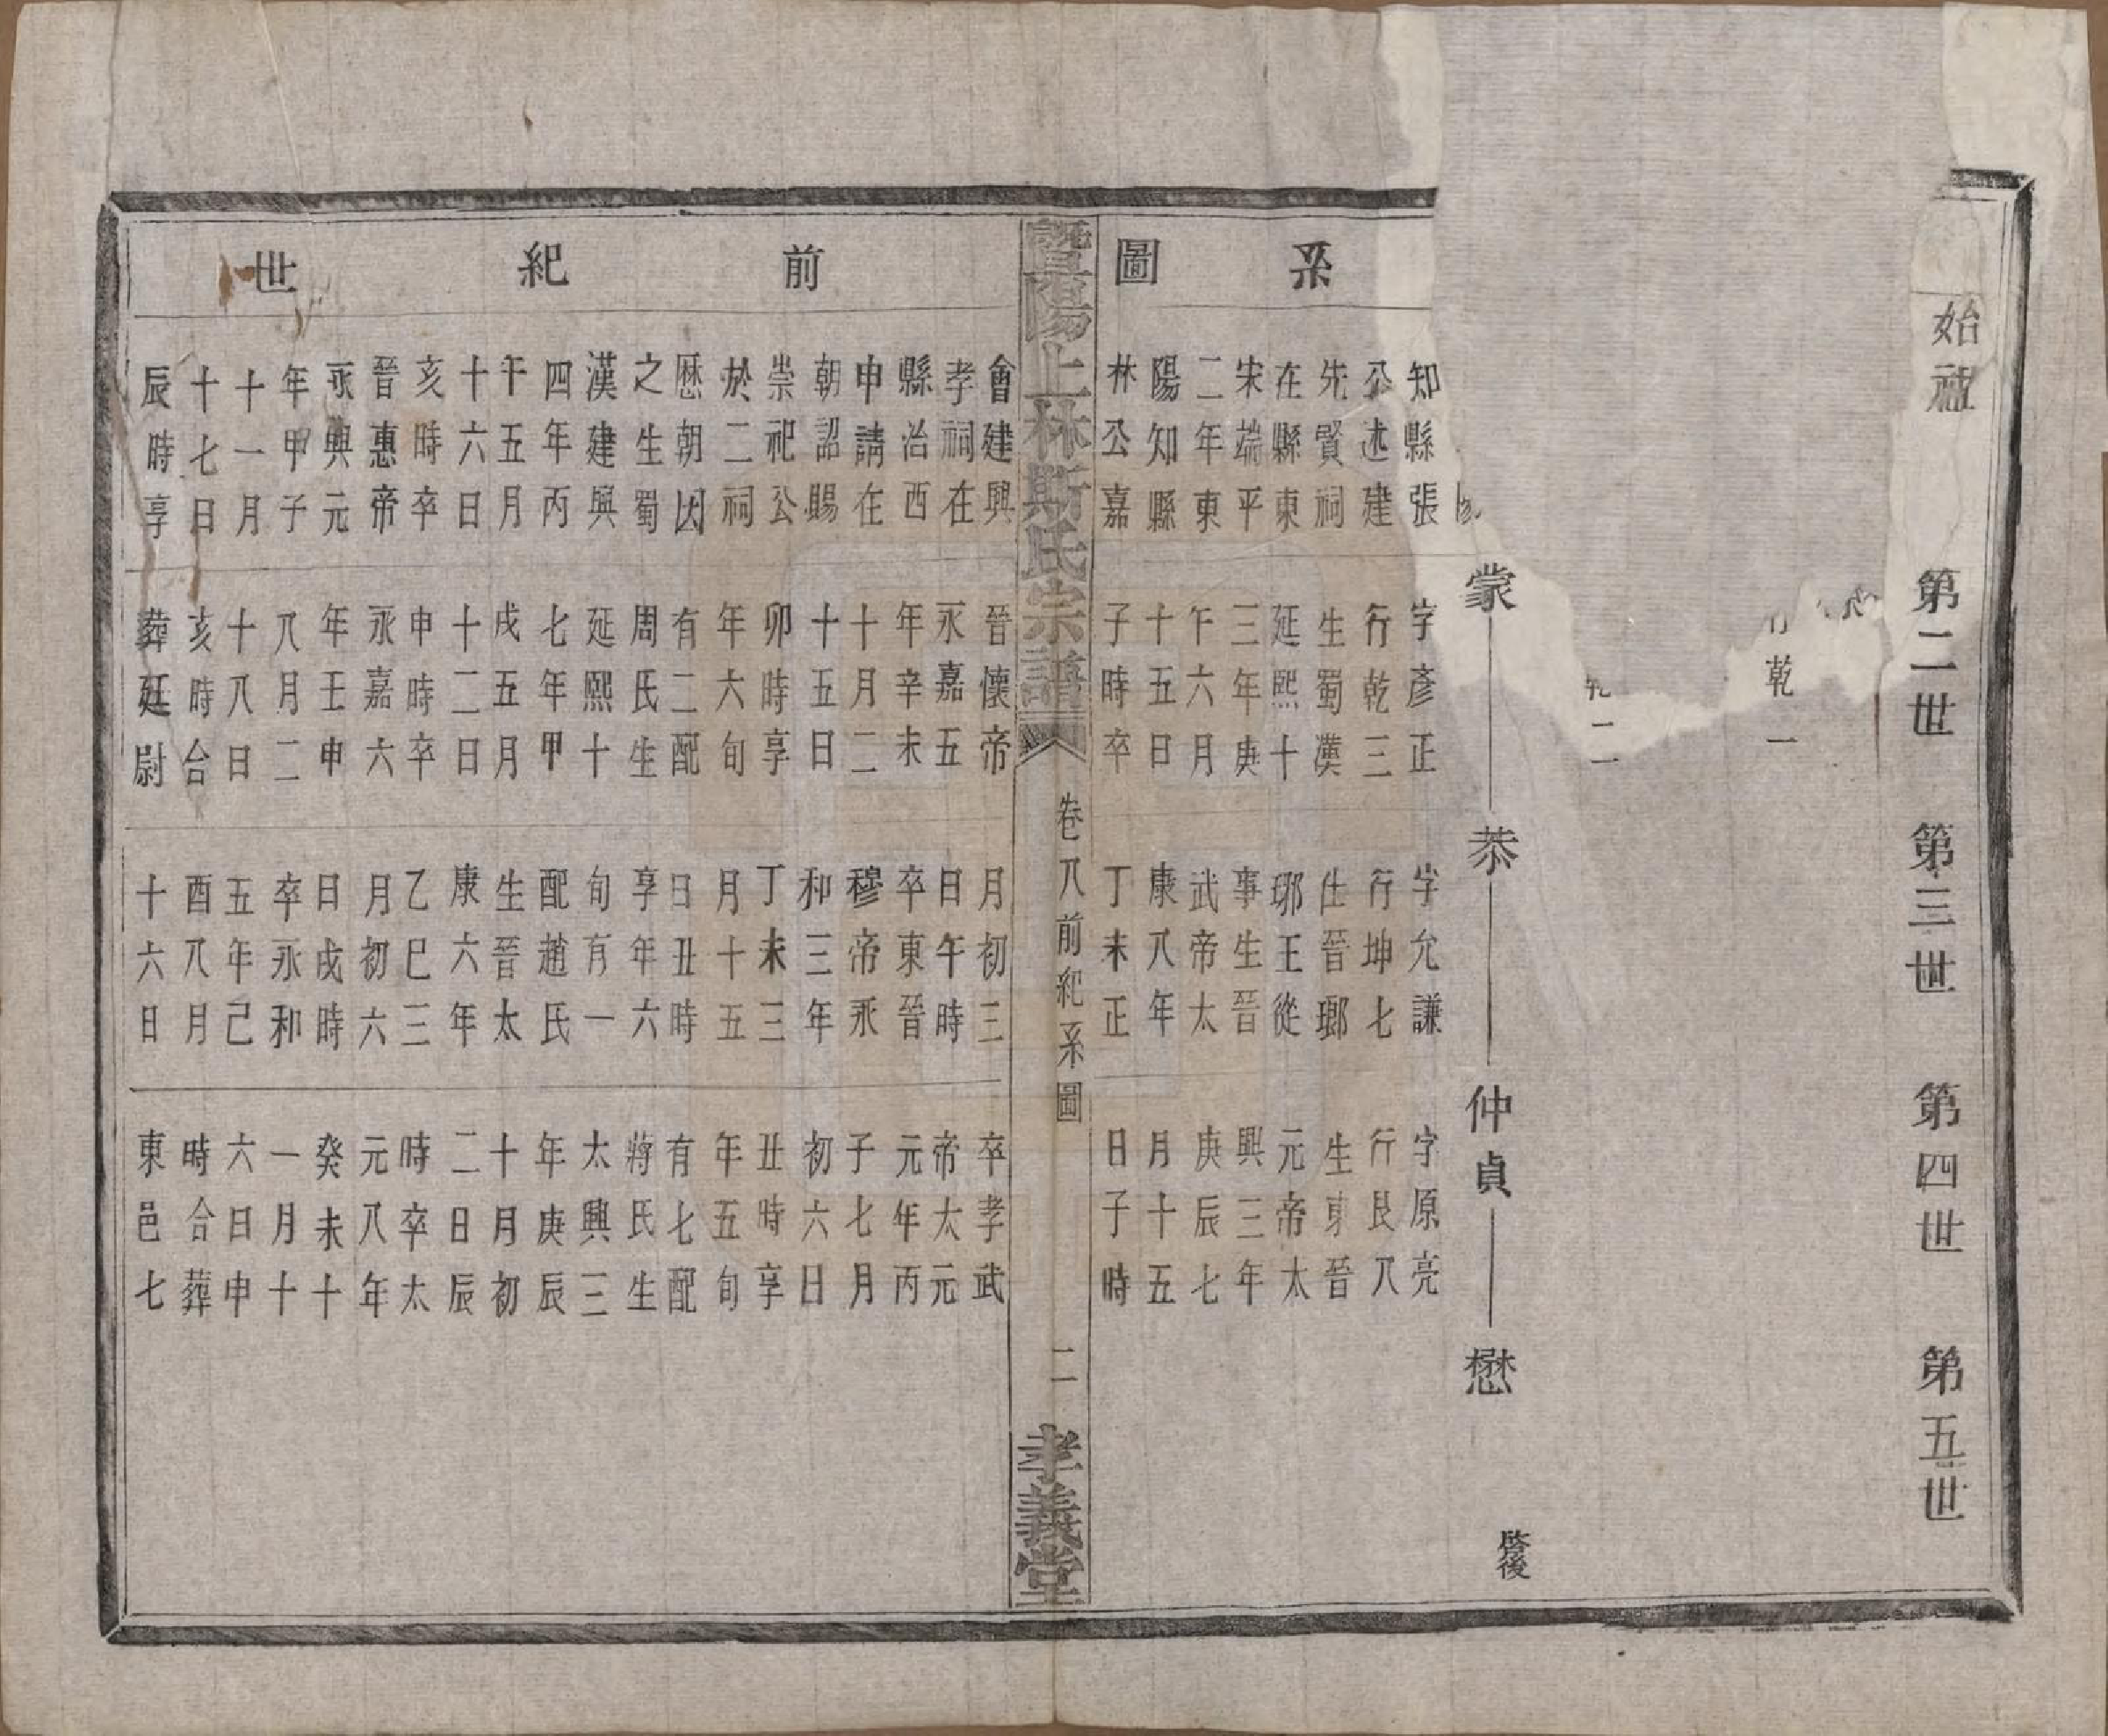 始祖
第二世
第三世
第四世
第五世
乾一
二
蒙
恭
仲貞
懋
啓後
系圖
知縣張
公述建
先賢祠
在縣東
宋端平
二年東
陽知縣
林公嘉
字彥正
行乾三
生蜀漢
延熙十
三年庚
午六月
十五日
子時卒
字允謙
行坤七
仕晉瑯
琊王從
事生晉
武帝太
康八年
丁未正
字原亮
行艮八
生東晉
元帝太
興三年
庚辰七
月十五
日子時
暨陽上林斯氏宗譜
卷八前紀系圖
二
孝義堂
前紀世
會建興
孝祠在
縣治西
申請在
朝詔賜
崇祀公
於二祠
歷朝因
之生蜀
漢建興
四年丙
午五月
十六日
亥時卒
晉惠帝
永興元
年甲子
十一月
十七日
辰時享
晉懷帝
永嘉五
年辛未
十月二
十五日
卯時享
年六旬
有二配
周氏生
延熙十
七年甲
戌五月
十二日
申時卒
永嘉六
年壬申
八月二
十八日
亥時合
葬廷尉
月初三
日午時
卒東晉
穆帝永
和三年
丁未三
月十五
日丑時
享年六
旬有一
配趙氏
生晉太
康六年
乙巳三
月初六
日戌時
卒永和
五年己
酉八月
十六日
卒孝武
帝太元
元年丙
子七月
初六日
丑時享
年五旬
有七配
蔣氏生
太興三
年庚辰
十月初
二日辰
時卒太
元八年
癸未十
一月十
六日申
時合葬
東邑七